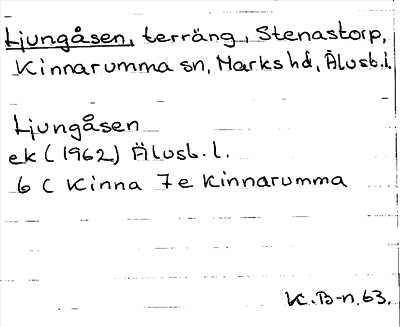 Ljungåsen, terräng, Stenastorp,
Kinnarumma sn, Marks hd, Älvsb.l.
Ljungåsen
ek (1962) Älvsb. l.
6 C Kinna 7 e Kinnarumma
K. B-n. 63.